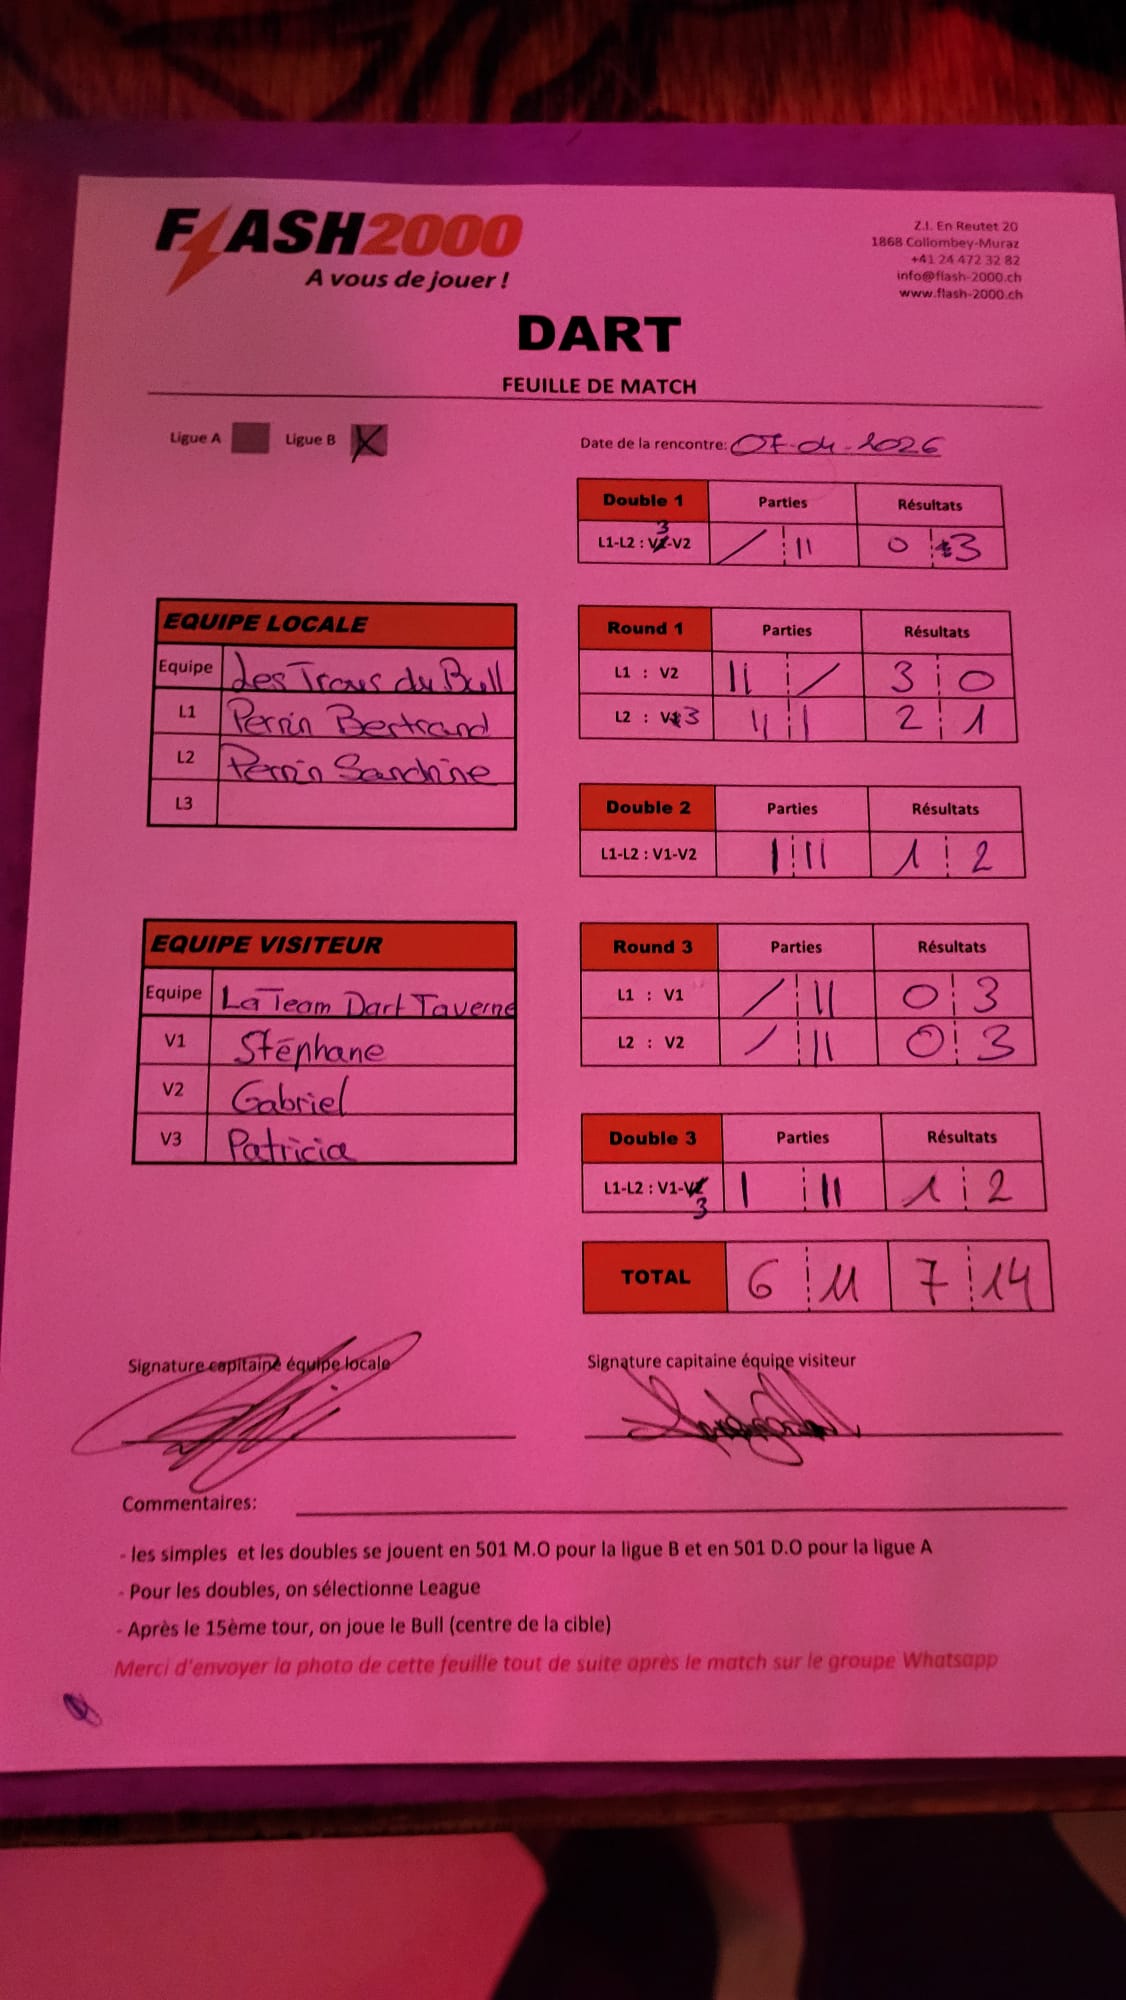 FLASH2000
A vous de jouer !
Z.I. En Reutet 20
1868 Collombey-Muraz
+41 24 472 32 82
info@flash-2000.ch
www.flash-2000.ch
DART
FEUILLE DE MATCH
Ligue A Ligue B X
Date de la rencontre: 07-04-2026
Double 1 Parties Résultats
3
L1-L2 : V1-V2 / II 0 3
EQUIPE LOCALE
Equipe Les Trous du Bull
L1 Perrin Bertrand
L2 Perrin Sandrine
L3
Round 1 Parties Résultats
L1 : V2 II / 3 0
L2 : V3 II I 2 1
Double 2 Parties Résultats
L1-L2 : V1-V2 I II 1 2
EQUIPE VISITEUR
Equipe La Team Dart Taverne
V1 Stéphane
V2 Gabriel
V3 Patricia
Round 3 Parties Résultats
L1 : V1 / II 0 3
L2 : V2 / II 0 3
Double 3 Parties Résultats
L1-L2 : V1-V2 I II 1 2
3
TOTAL 6 11 7 14
Signature capitaine équipe locale
Signature capitaine équipe visiteur
Commentaires:
- les simples et les doubles se jouent en 501 M.O pour la ligue B et en 501 D.O pour la ligue A
- Pour les doubles, on sélectionne League
- Après le 15ème tour, on joue le Bull (centre de la cible)
Merci d'envoyer la photo de cette feuille tout de suite après le match sur le groupe Whatsapp